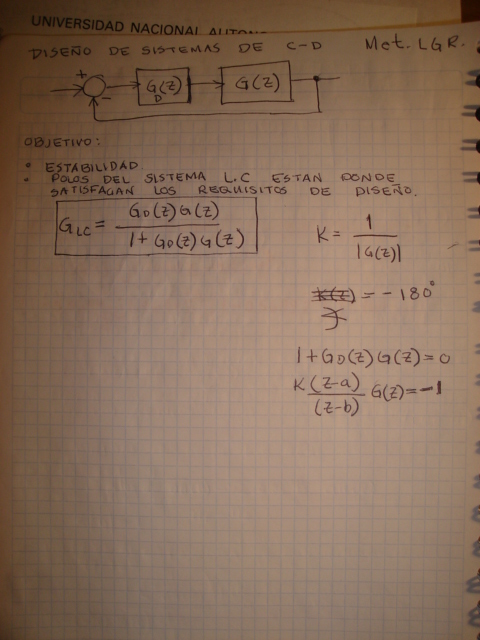 UNIVERSIDAD NACIONAL
DISEÑO DE SISTEMAS DE C-D Met. LGR.
+
-
G_D(z)
G(z)
OBJETIVO:
• ESTABILIDAD
• POLOS DEL SISTEMA L.C ESTAN DONDE
SATISFAGAN LOS REQUISITOS DE DISEÑO.
G_LC = G_D(z)G(z) / 1 + G_D(z)G(z)
K = 1 / |G(z)|
= -180°
1+G_D(z)G(z)=0
K (z-a) / (z-b) G(z)=-1